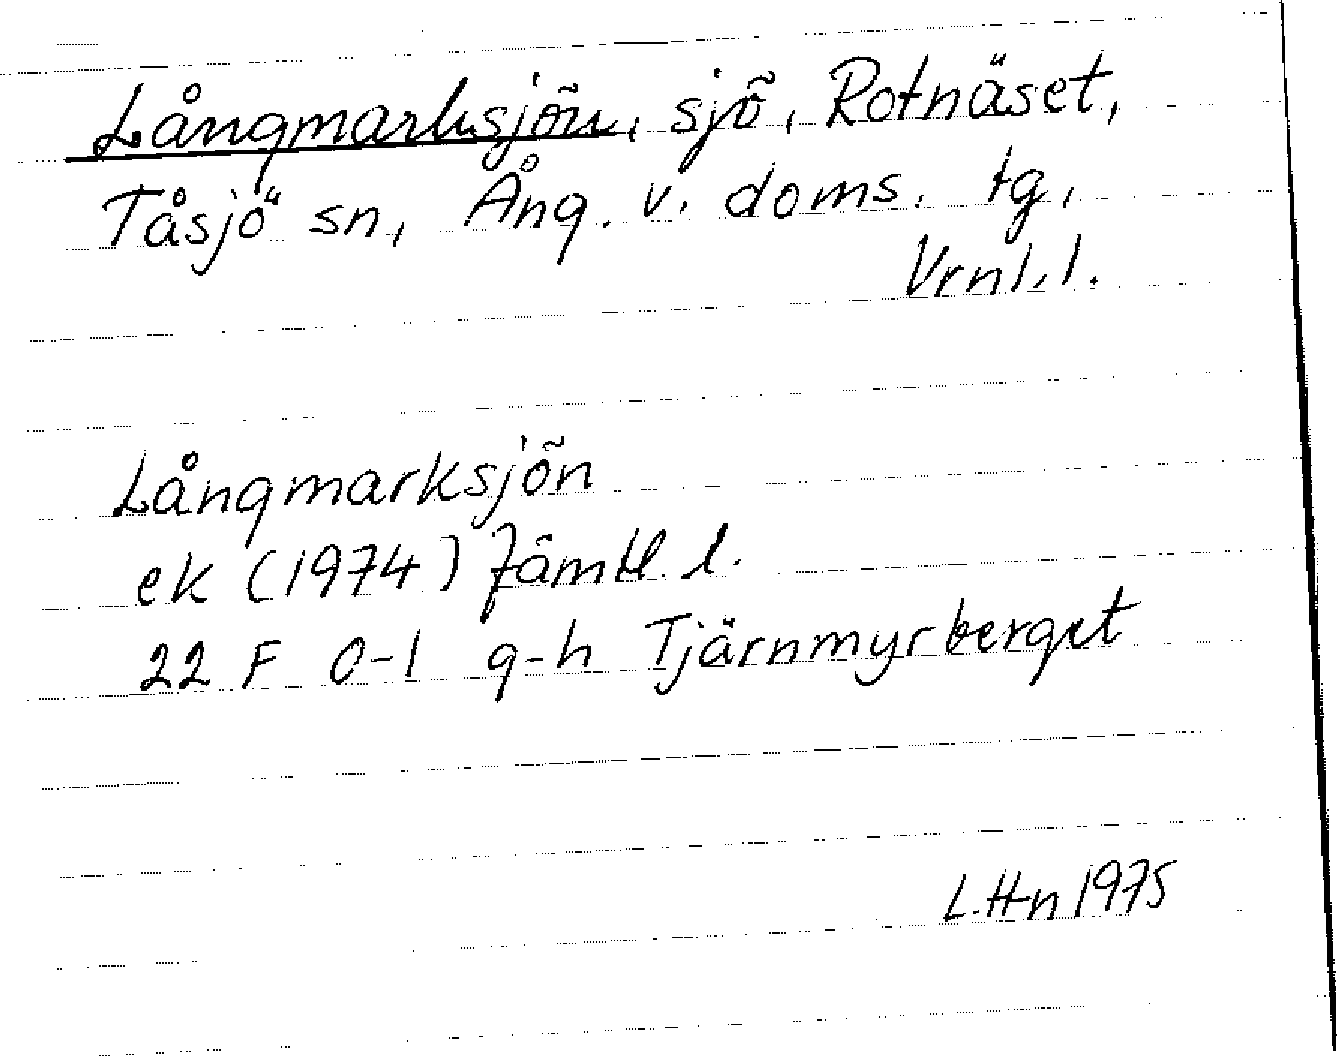 Långmarksjön, sjö, Rotnäset,
Tåsjö sn, Ång. v. doms. tg,
Vrnl. l.
Långmarksjön
ek (1974) Jämtl. l.
22 F 0-1 g-h Tjärnmyrberget
L. H-n 1975